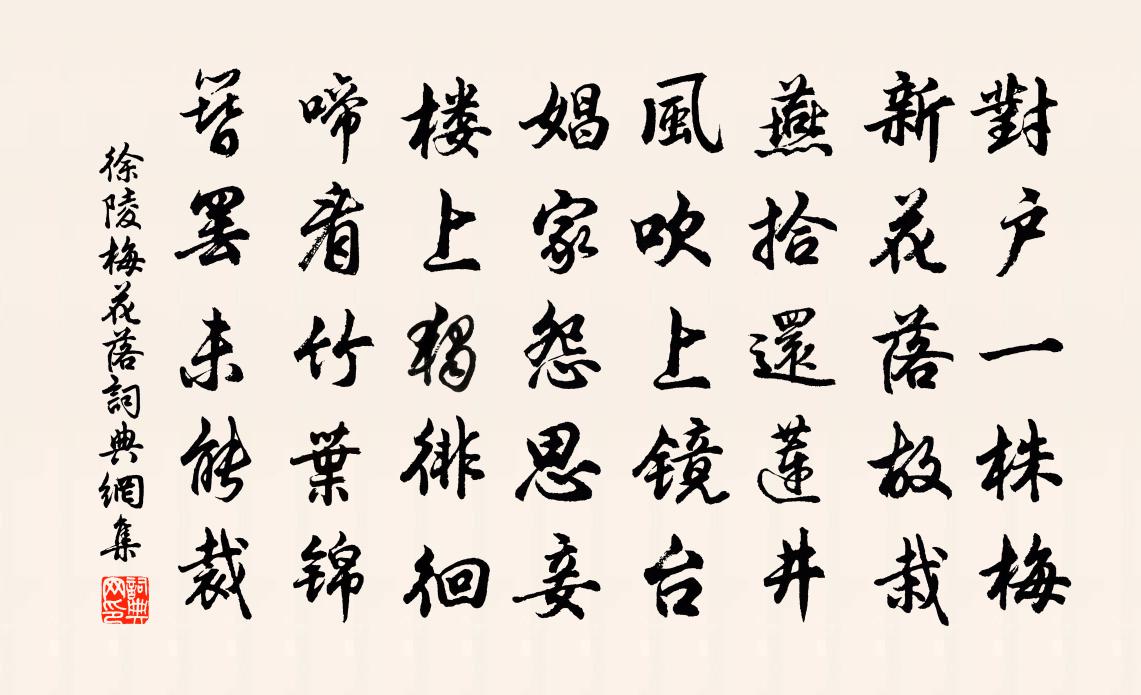 對户一株梅
新花落故栽
燕拾還蓮井
風吹上鏡台
娼家怨思妾
楼上獨徘徊
啼看竹葉錦
簪罢未能裁
徐陵梅花落詞典網集
詞典网印